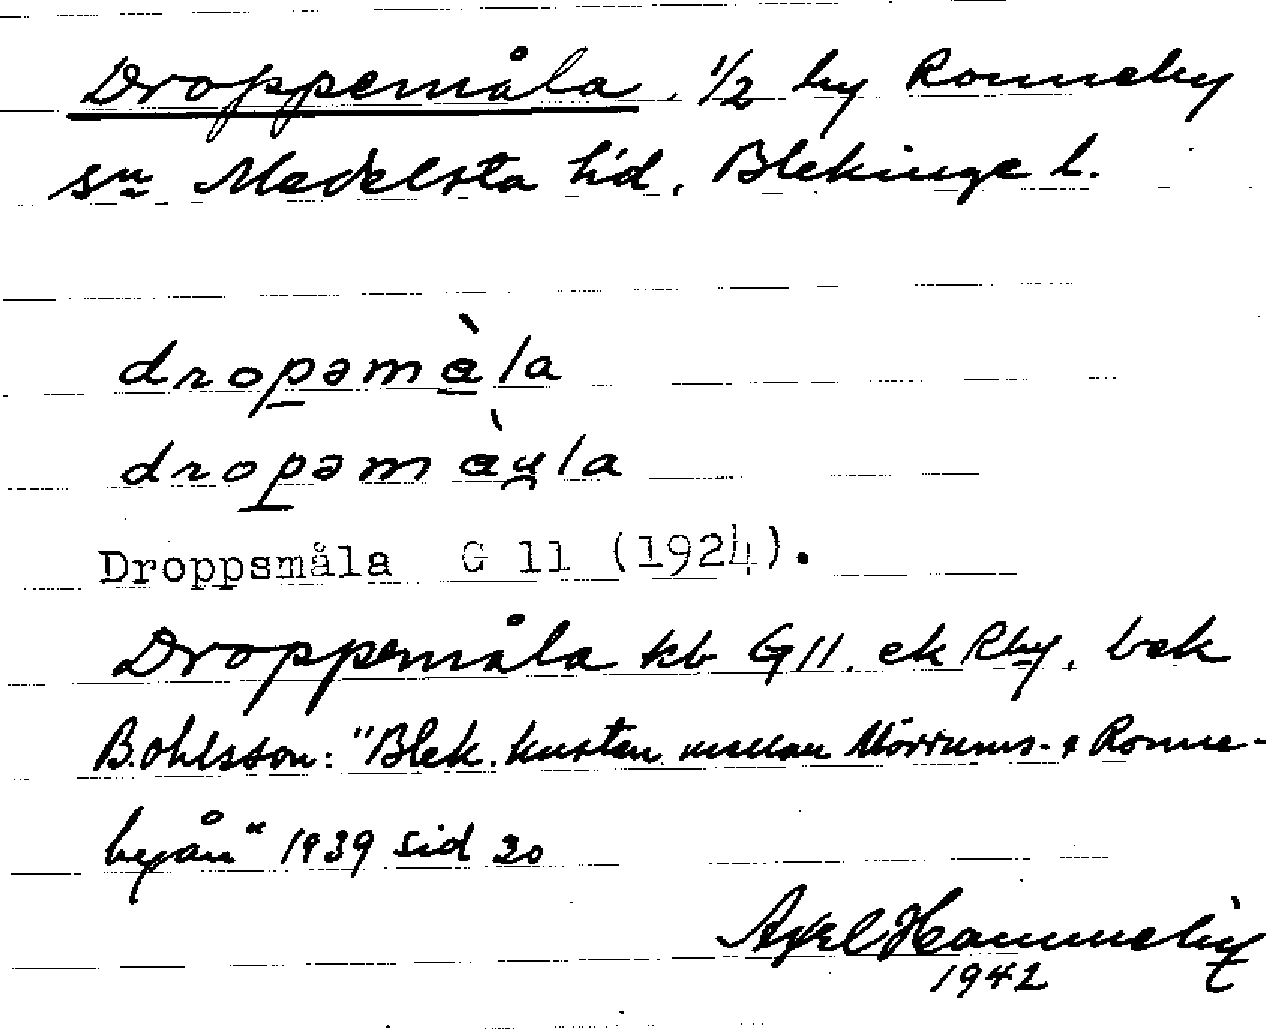 Droppemåla. 1/2 by Ronneby
sn Medelsta hd. Blekinge l.
dropəmàla
dropəmàu̯la
Droppsmåla G 11 (1924).
Droppemåla kb G 11. ek Rby. bek
B. Ohlsson: "Blek. kusten mellan Mörrums- & Ronne-
byån" 1939 sid 20
Axel
1942